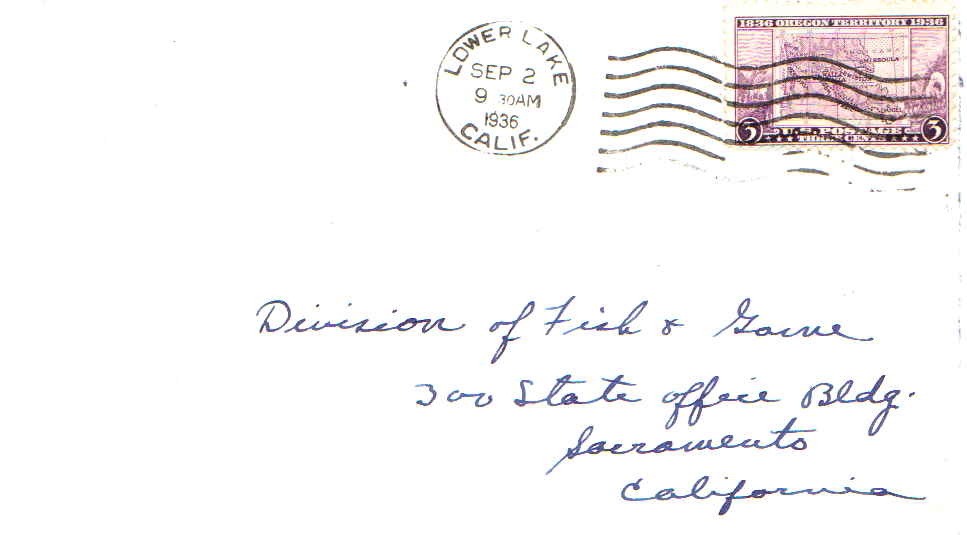 LOWER LAKE
SEP 2
9 30AM
1936
CALIF.
1836 OREGON TERRITORY 1936
MISSOULA
3 U.S. POSTAGE 3
THREE CENTS
Division of Fish & Game
300 State office Bldg.
Sacramento
California